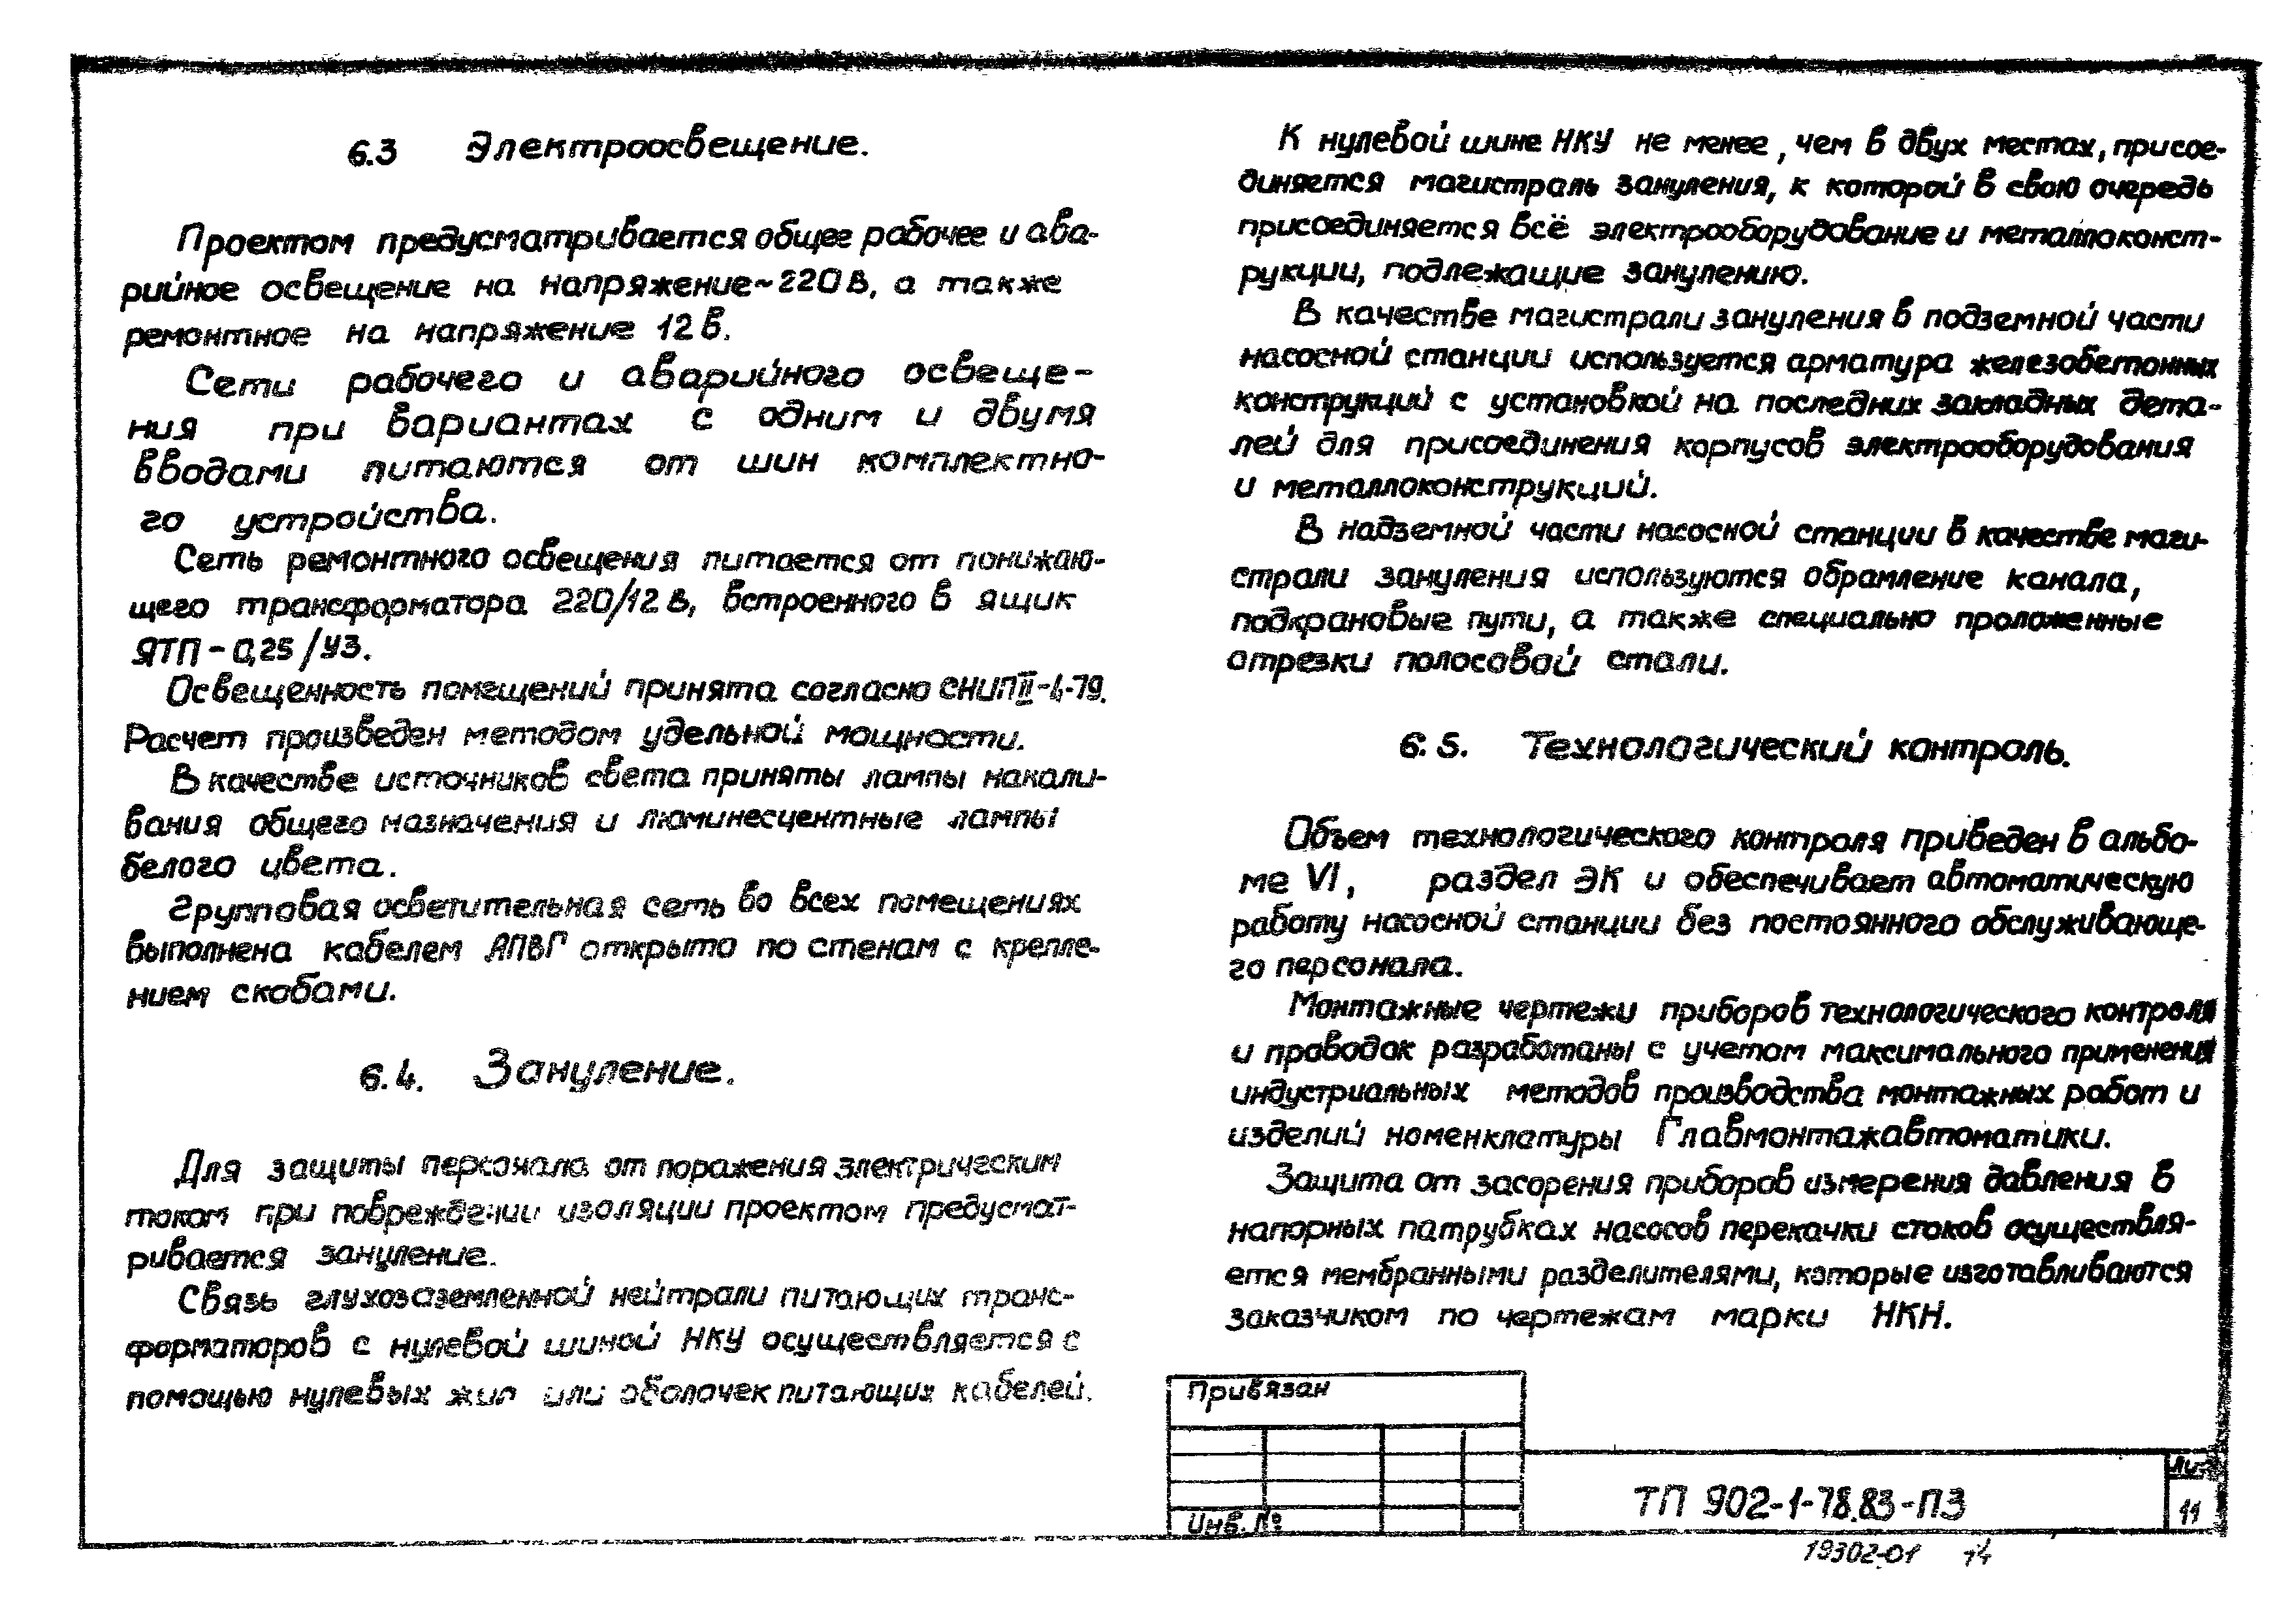 6.3 Электроосвещение.
Проектом предусматривается общее рабочее и ава-
рийное освещение на напряжение ~220 В, а также
ремонтное на напряжение 12 В.
Сети рабочего и аварийного освеще-
ния при вариантах с одним и двумя
вводами питаются от шин комплектно-
го устройства.
Сеть ремонтного освещения питается от понижаю-
щего трансформатора 220/12 В, встроенного в ящик
ЯТП-0,25/У3.
Освещенность помещений принята согласно СНИП II-4-79.
Расчет произведен методом удельной мощности.
В качестве источников света приняты лампы накали-
вания общего назначения и люминесцентные лампы
белого цвета.
Групповая осветительная сеть во всех помещениях
выполнена кабелем АПВГ открыто по стенам с крепле-
нием скобами.
6.4. Зануление.
Для защиты персонала от поражения электрическим
током при повреждении изоляции проектом предусмат-
ривается зануление.
Связь глухозаземленной нейтрали питающих транс-
форматоров с нулевой шиной НКУ осуществляется с
помощью нулевых жил или оболочек питающих кабелей.
К нулевой шине НКУ не менее, чем в двух местах, присое-
диняется магистраль зануления, к которой в свою очередь
присоединяется всё электрооборудование и металлоконст-
рукции, подлежащие занулению.
В качестве магистрали зануления в подземной части
насосной станции используется арматура железобетонных
конструкций с установкой на последних закладных дета-
лей для присоединения корпусов электрооборудования
и металлоконструкций.
В надземной части насосной станции в качестве маги-
страли зануления используются обрамление канала,
подкрановые пути, а также специально проложенные
отрезки полосовой стали.
6.5. Технологический контроль.
Объем технологического контроля приведен в альбо-
ме VI, раздел ЭК и обеспечивает автоматическую
работу насосной станции без постоянного обслуживающе-
го персонала.
Монтажные чертежи приборов технологического контроля
и проводок разработаны с учетом максимального применения
индустриальных методов производства монтажных работ и
изделий номенклатуры Главмонтажавтоматики.
Защита от засорения приборов измерения давления в
напорных патрубках насосов перекачки стоков осуществля-
ется мембранными разделителями, которые изготавливаются
заказчиком по чертежам марки НКН.
Привязан
Инв. №
ТП 902-1-78.83-ПЗ
11
19302-01 14